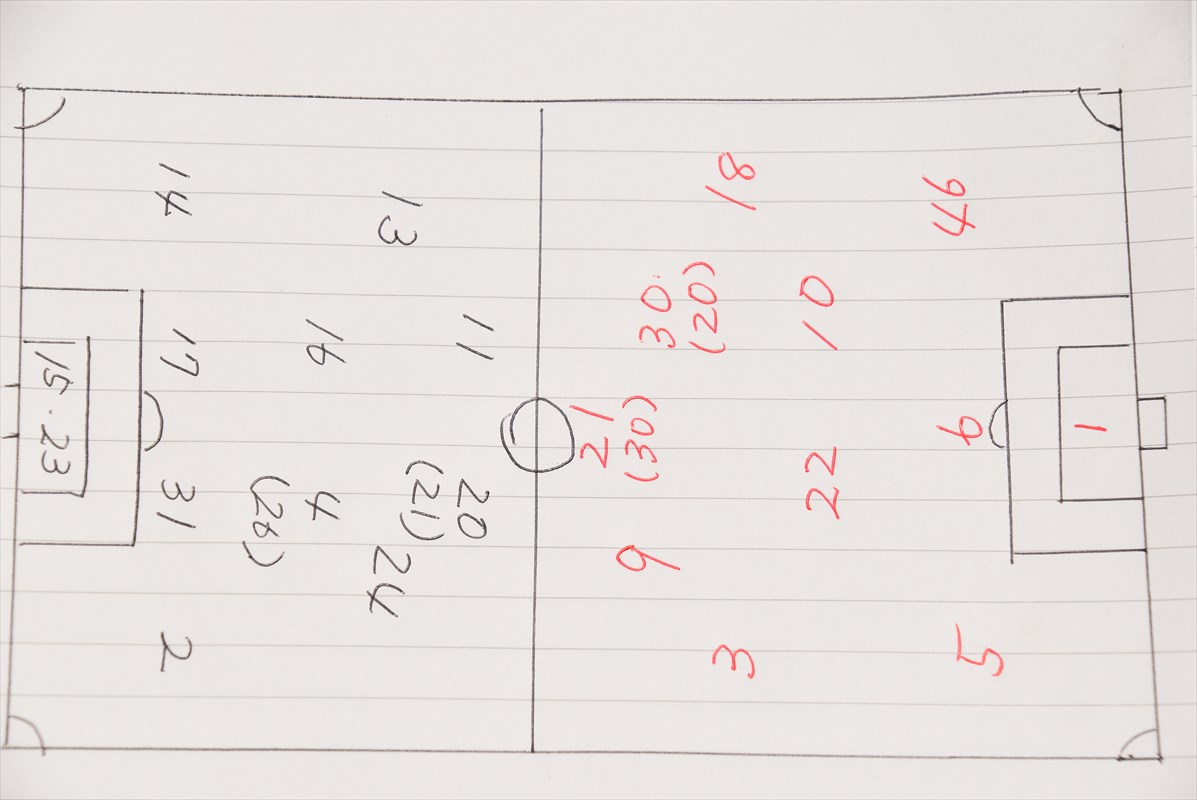 14
13
17
16
11
15. 23
31
4
(26)
20
(21)
24
2
18
46
30
(20)
10
21
(30)
22
6
1
9
3
5